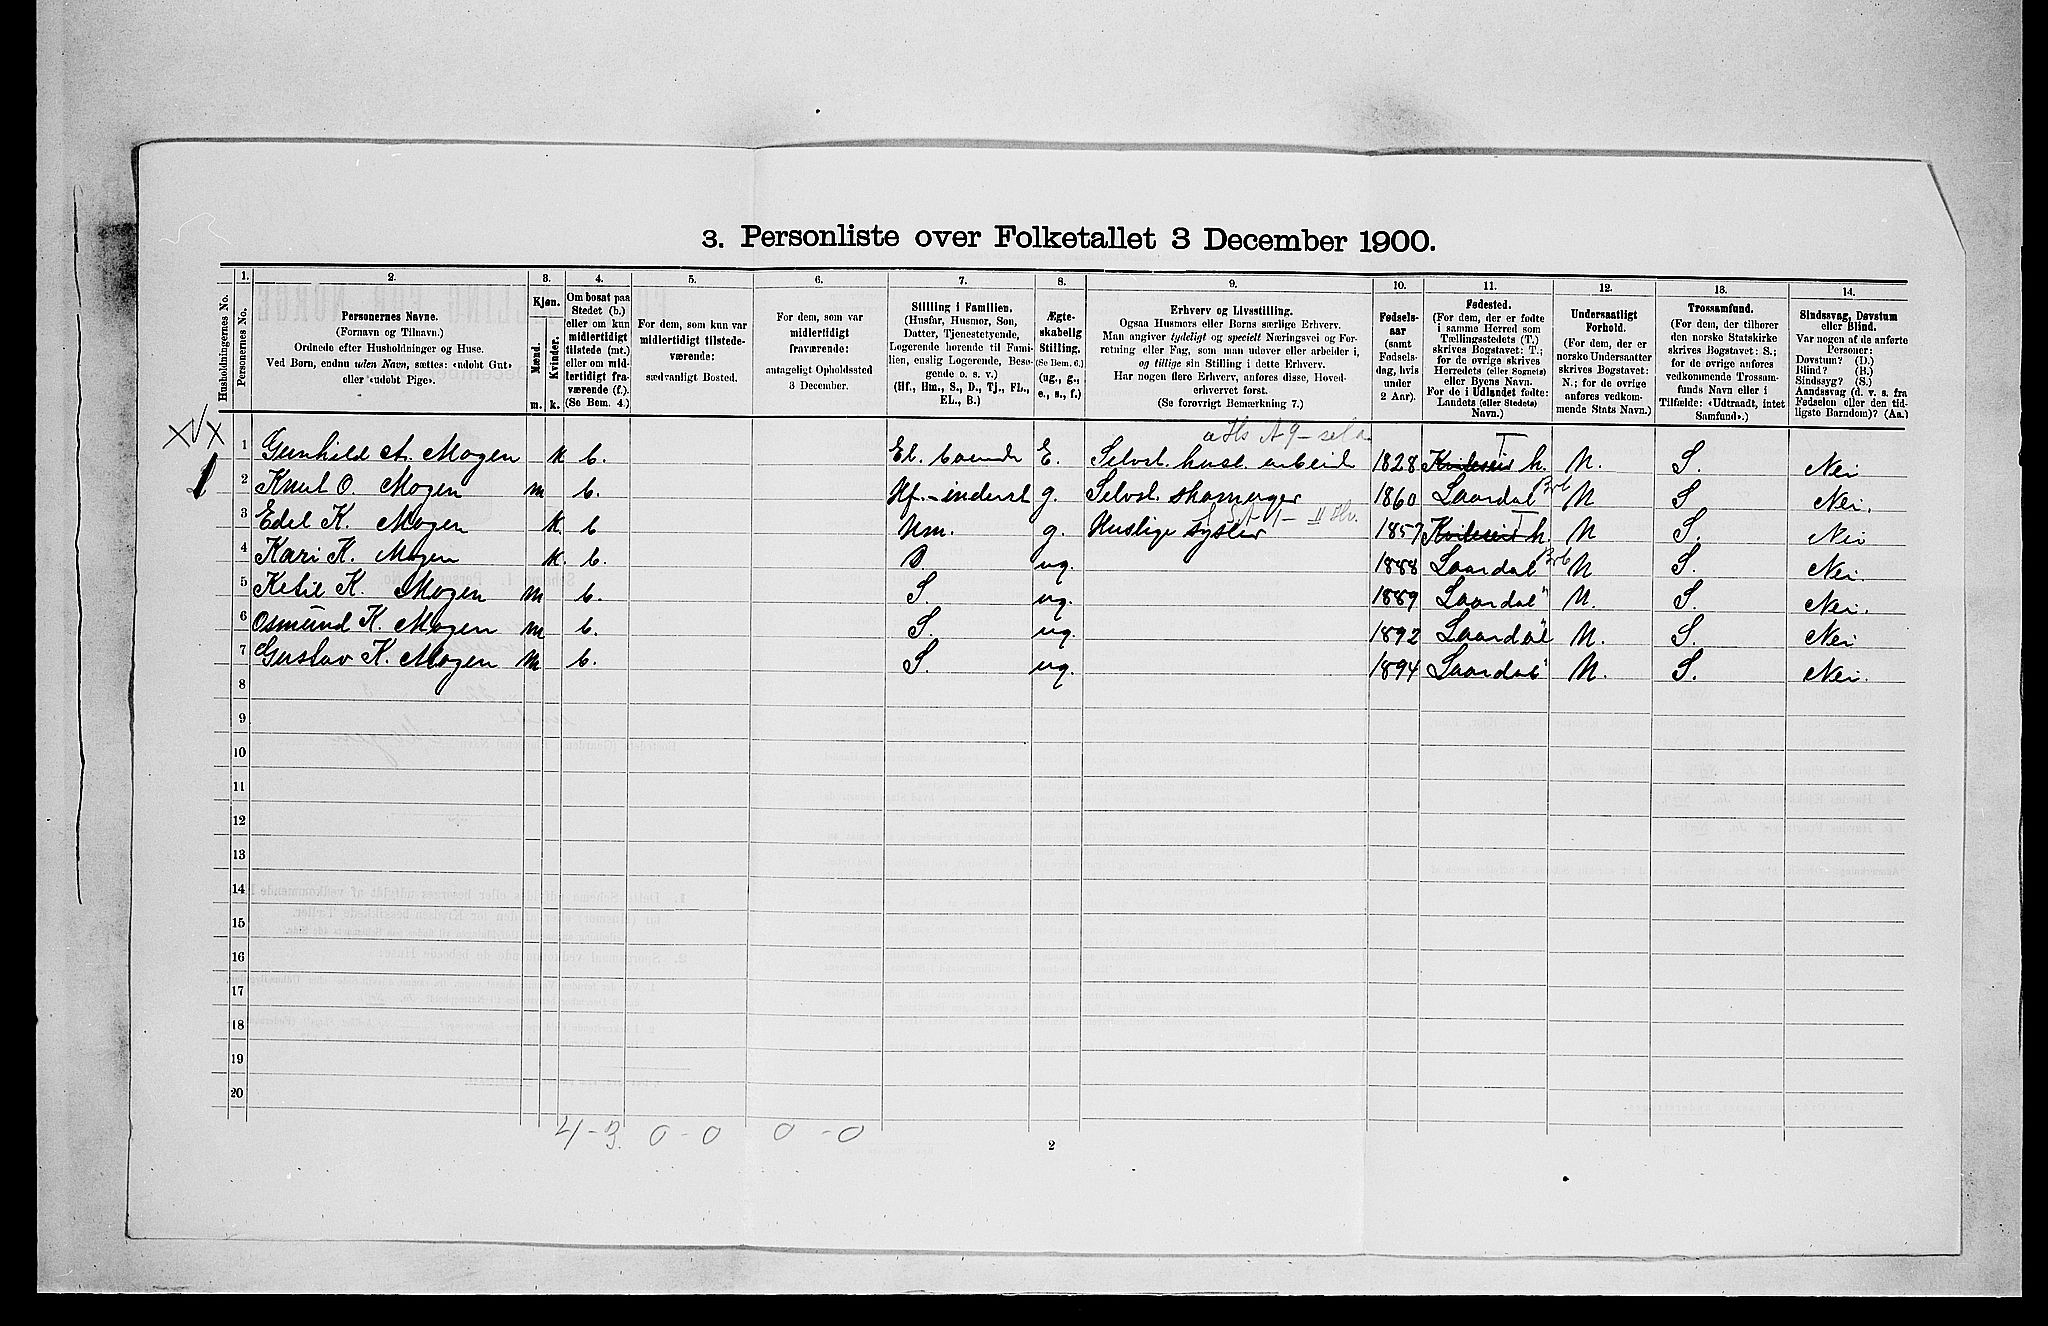 3. Personliste over Folketallet 3 December 1900.
1. 2. 3. 4. 5. 6. 7. 8. 9. 10. 11. 12. 13. 14.
Husholdningernes No.
Personernes No.
Personernes Navne.
(Fornavn og Tilnavn.)
Ordnede efter Husholdninger og Huse.
Ved Børn, endnu uden Navn, sættes: «udøbt Gut»
eller «udøbt Pige».
Kjøn.
Mænd.
Kvinder.
m. k.
Om bosat paa
Stedet (b.)
eller om kun
midlertidigt
tilstede (mt.)
eller om mid-
lertidigt fra-
værende (f.).
(Se Bem. 4.)
For dem, som kun var
midlertidigt tilstede-
værende:
sædvanligt Bosted.
For dem, som var
midlertidigt
fraværende:
antageligt Opholdssted
3 December.
Stilling i Familien.
(Husfar, Husmor, Søn,
Datter, Tjenestetyende,
Logerende hørende til Fami-
lien, enslig Logerende, Besø-
gende o. s. v.)
(Hf., Hm., S., D., Tj., FL.,
EL., B.)
Ægte-
skabelig
Stilling.
(Se Bem. 6.)
(ug., g.,
e., s., f.)
Erhverv og Livsstilling.
Ogsaa Husmors eller Børns særlige Erhverv.
Man angiver tydeligt og specielt Næringsvei og For-
retning eller Fag, som man udøver eller arbeider i,
og tillige sin Stilling i dette Erhverv.
Har nogen flere Erhverv, anføres disse, Hoved-
erhvervet først.
(Se forøvrigt Bemærkning 7.)
Fødsels-
aar
(samt
Fødsels-
dag, hvis
under
2 Aar).
Fødested.
(For dem, der er fødte
i samme Herred som
Tællingsstedets (T.)
skrives Bogstavet: T.;
for de øvrige skrives
Herredets (eller Sognets)
eller Byens Navn.
For de i Udlandet fødte:
Landets (eller Stedets)
Navn.)
Undersaatligt
Forhold.
(For dem, der er
norske Undersaatter
skrives Bogstavet:
N.; for de øvrige
anføres vedkom-
mende Stats Navn.)
Trossamfund.
(For dem, der tilhører
den norske Statskirke
skrives Bogstavet: S.;
for de øvrige anføres
vedkommende Trossam-
funds Navn eller i
Tilfælde: «Udtraadt, intet
Samfund».)
Sindssvag, Døvstum
eller Blind.
Var nogen af de anførte
Personer:
Døvstum? (D.)
Blind? (B.)
Sindssyg? (S.)
Aandssvag (d. v. s. fra
Fødselen eller den tid-
ligste Barndom)? (Aa.)
1 Gunhild A. Mogen k b. El. boende E. Selvst. husl. arbeid 1828 Kviteseid h. T N. S. Nei
2 Knut O. Mogen m b. Hf. - inderst g. Selvst. skomager 1860 Laardal Brb N S Nei.
3 Edel K. Mogen k b Hm. g. Huslige sysler 1857 Kviteseid h. T N S. Nei
4 Kari K. Mogen k. b. D ug. 1888 Laardal Brb N S. Nei.
5 Ketil K. Mogen m b. S. ug. 1889 Laardal " N. S. Nei.
6 Osmund K. Mogen m b. S. ug. 1892 Laardal " N. S. Nei
7 Gustav K. Mogen m b. S. ug. 1894 Laardal " N. S. Nei.
8
9
10
11
12
13
14
15
16
17
18
19
20
4-3. 0-0 0-0
2